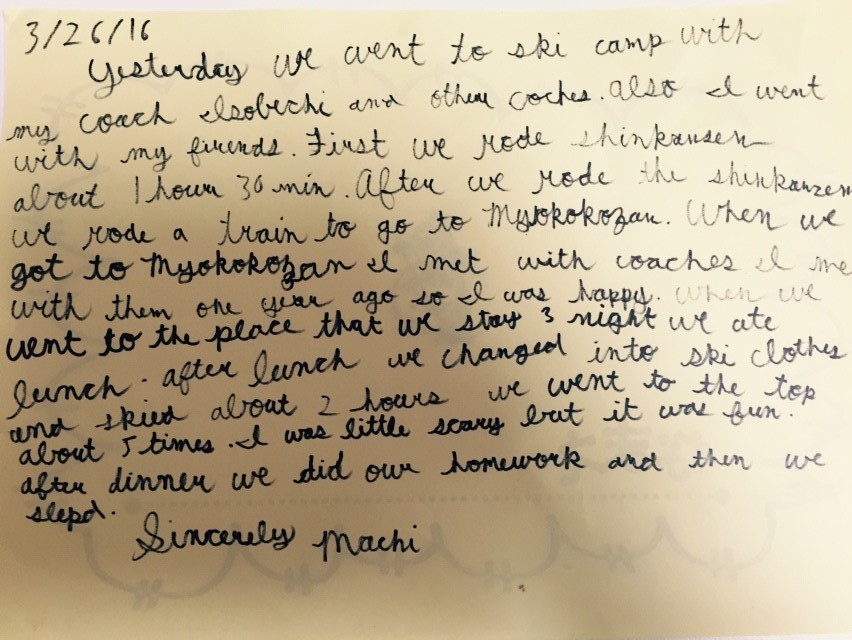 3/26/16
Yesterday we went to ski camp with
my coach Isobechi and other coches. Also I went
with my firends. First we rode shinkansen
about 1 hour 30 min. After we rode the shinkanzen
we rode a train to go to Myokokozan. When we
got to Myokokozan I met with coaches I me
with them one year ago so I was happy. When we
went to the place that we stay 3 night we ate
lunch. after lunch we changed into ski clothes
and skied about 2 hours we went to the top
about 5 times. I was little scary but it was fun.
after dinner we did our homework and then we
slepd.
Sincerely Machi